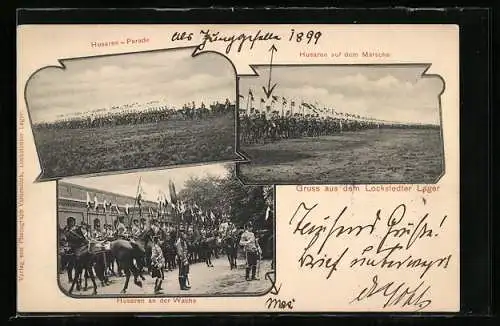 als Junggeselle 1899
Husaren - Parade
Husaren auf dem Marsche
Gruss aus dem Lockstedter Lager
Tausend Grüße!
Brief unterwegs
Husaren an der Wache
Verlag von Photograph
Lockstedter Lager